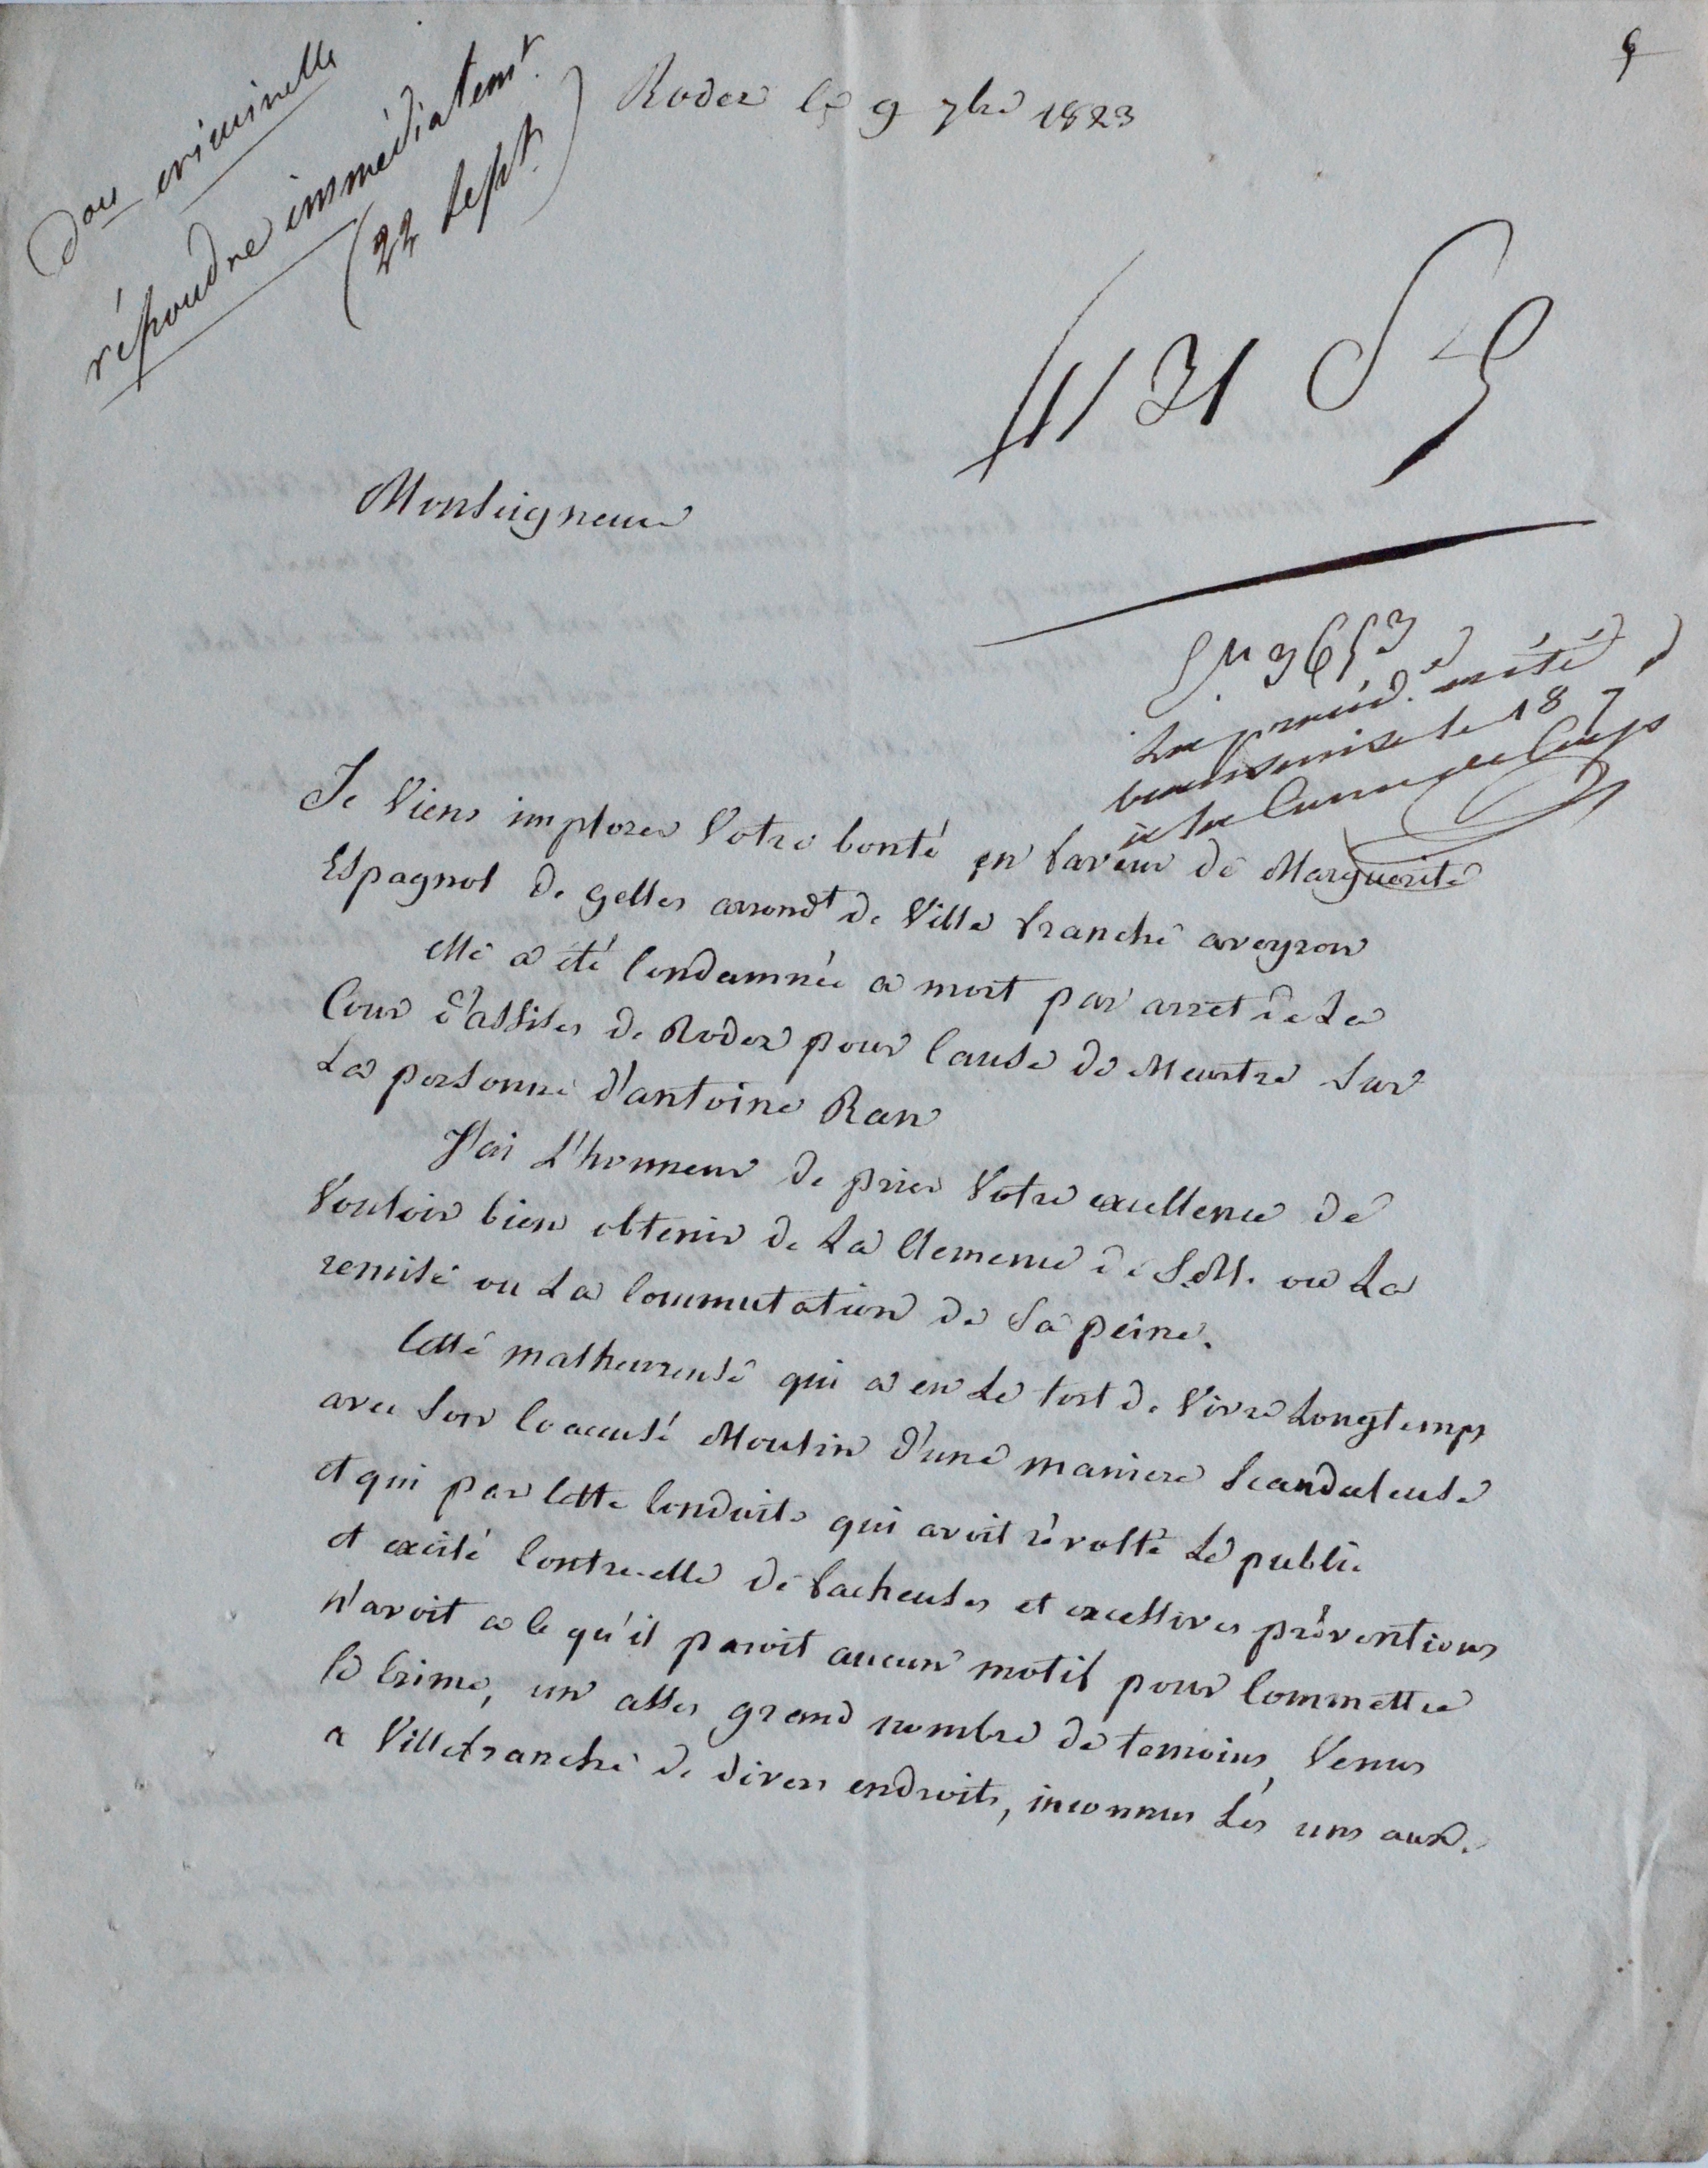 don criminelle
répondre immédiatemt.
(22 Sept.)
Rodez le 9 7bre 1823
Monseigneur
Je Viens implorer Votre bonté en faveur de Marguerite
Espagnol de gelles arrondt de Ville franche aveyron
elle a été Condamnée a mort par arret de La
Cour d'assises de Rodez pour Cause de Meurtre sur
La personne d'antoine Ran
J'ai L'honneur de prier Votre excellence de
Vouloir bien obtenir de La Clemence de S.M. ou La
remise ou La Commutation de sa peine.
Cette malheureuse qui a eu Le tort de Vivre Longtemps
avec son Coaccusé Moulin d'une maniere Scandaleuse
et qui par Cette Conduite qui avoit révolté Le public
et excité Contre-elle de facheuses et excessives préventions
n'avoit a ce qu'il paroit aucun motif pour Commettre
Ce Crime, un asses grand nombre de temoins, Venus
a Villefranche de divers endroits, inconnus Les uns aux